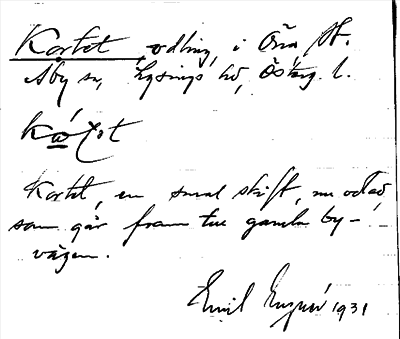 Kortet, odling, i Öna St.
Åby sn, Lysings hd, Österg. l.
Kortet, en smal skift, nu odlad,
som går fram till gamla by-
vägen.
Emil 1931